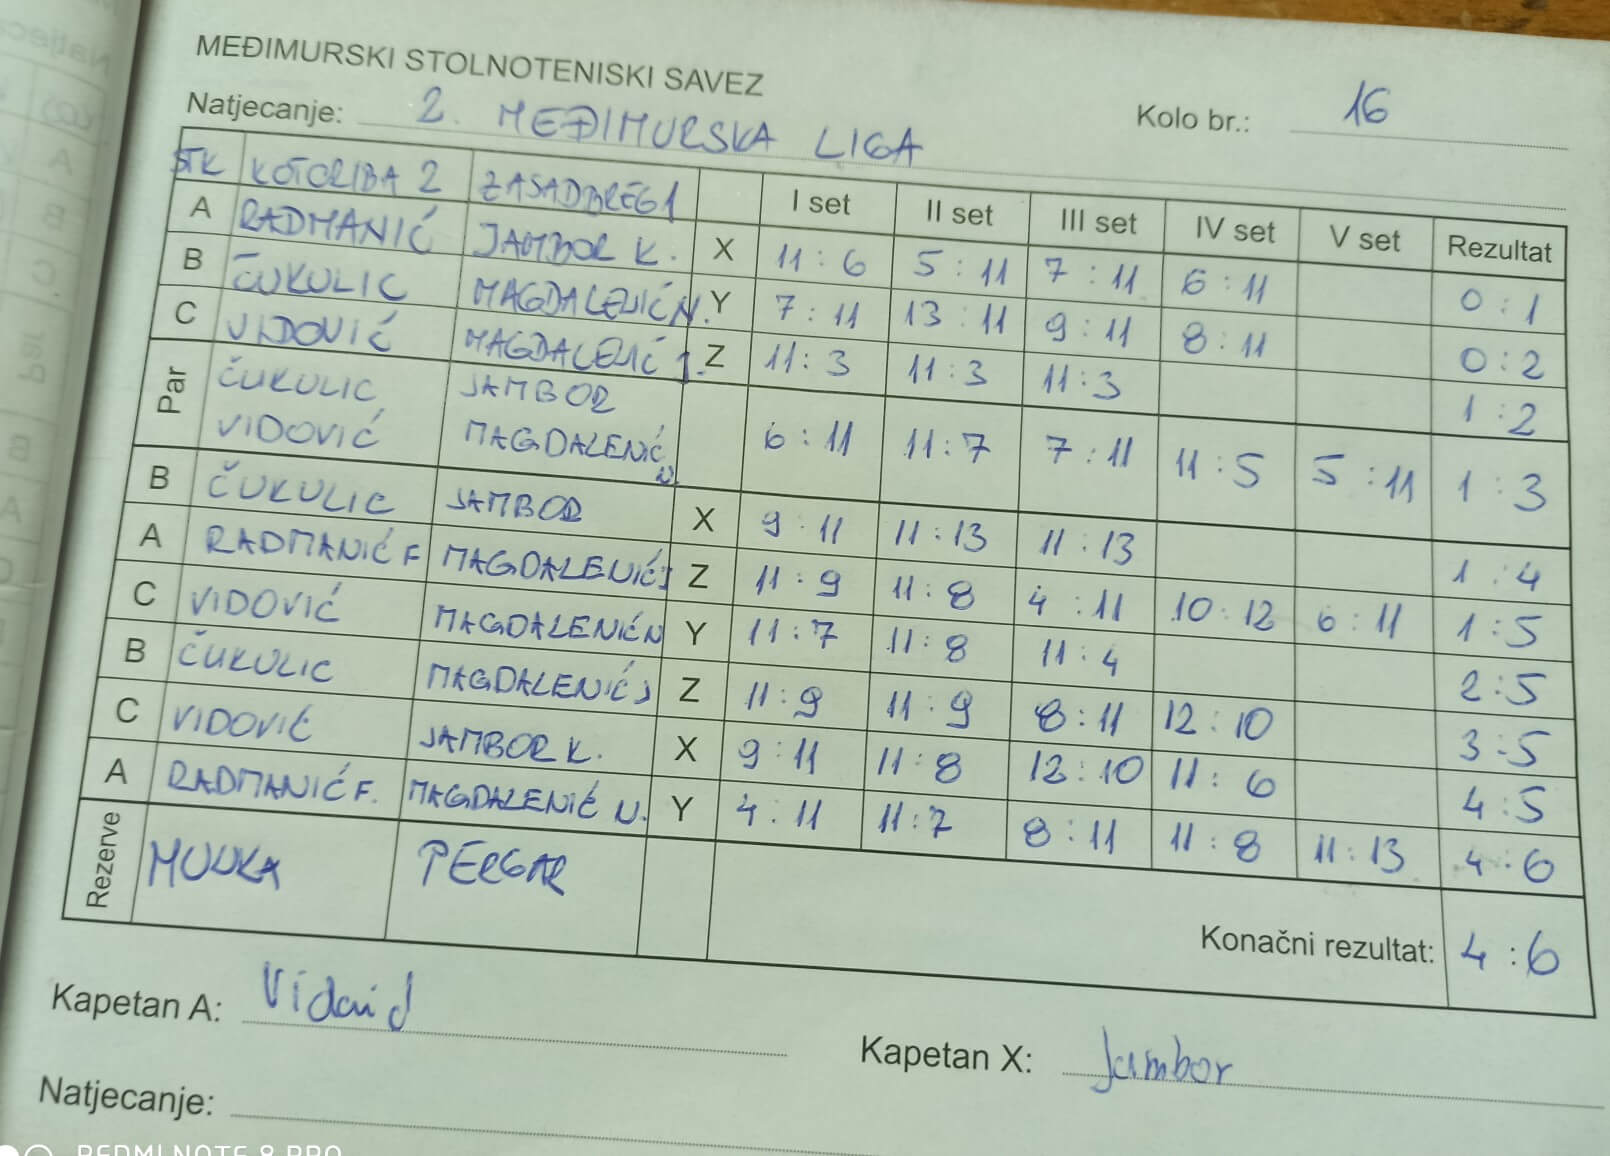 MEĐIMURSKI STOLNOTENISKI SAVEZ
Natjecanje: 2. MEĐIMURSKA LIGA Kolo br.: 16
STK KOTORIBA 2 ZASADBREG 1 I set II set III set IV set V set Rezultat
A RADMANIĆ JAMBOR K. X 11:6 5:11 7:11 6:11 0:1
B ČUKULIC MAGDALENIĆ N. Y 7:11 13:11 9:11 8:11 0:2
C VIDOVIĆ MAGDALENIĆ J. Z 11:3 11:3 11:3 1:2
Par ČUKULIC JAMBOR
VIDOVIĆ MAGDALENIĆ N. 6:11 11:7 7:11 11:5 5:11 1:3
B ČUKULIC JAMBOR X 9:11 11:13 11:13 1:4
A RADMANIĆ F MAGDALENIĆ J Z 11:9 11:8 4:11 10:12 6:11 1:5
C VIDOVIĆ MAGDALENIĆ N Y 11:7 11:8 11:4 2:5
B ČUKULIC MAGDALENIĆ J Z 11:9 11:9 8:11 12:10 3:5
C VIDOVIĆ JAMBOR K. X 9:11 11:8 12:10 11:6 4:5
A RADMANIĆ F. MAGDALENIĆ N. Y 4:11 11:7 8:11 11:8 11:13 4:6
Rezerve PERGAR
Konačni rezultat: 4:6
Kapetan A:
Kapetan X: Jambor
Natjecanje:
REDMI NOTE 8 PRO